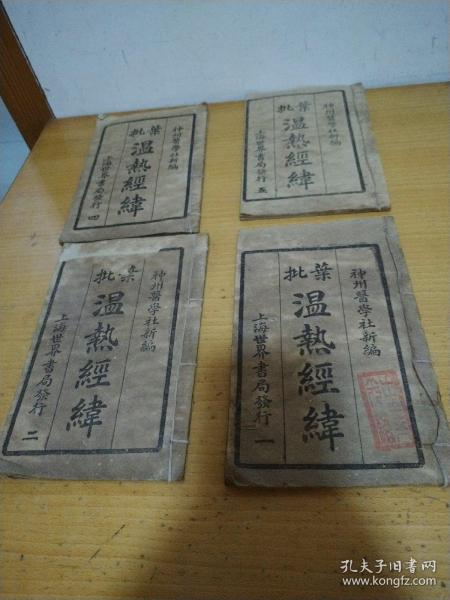 神州醫學社新編
葉批
溫熱經緯
上海世界書局發行
四
神州醫學社新編
葉批
溫熱經緯
上海世界書局發行
五
神州醫學社新編
葉批
溫熱經緯
上海世界書局發行
二
神州醫學社新編
葉批
溫熱經緯
上海世界書局發行
一
孔夫子旧书网
www.kongfz.com